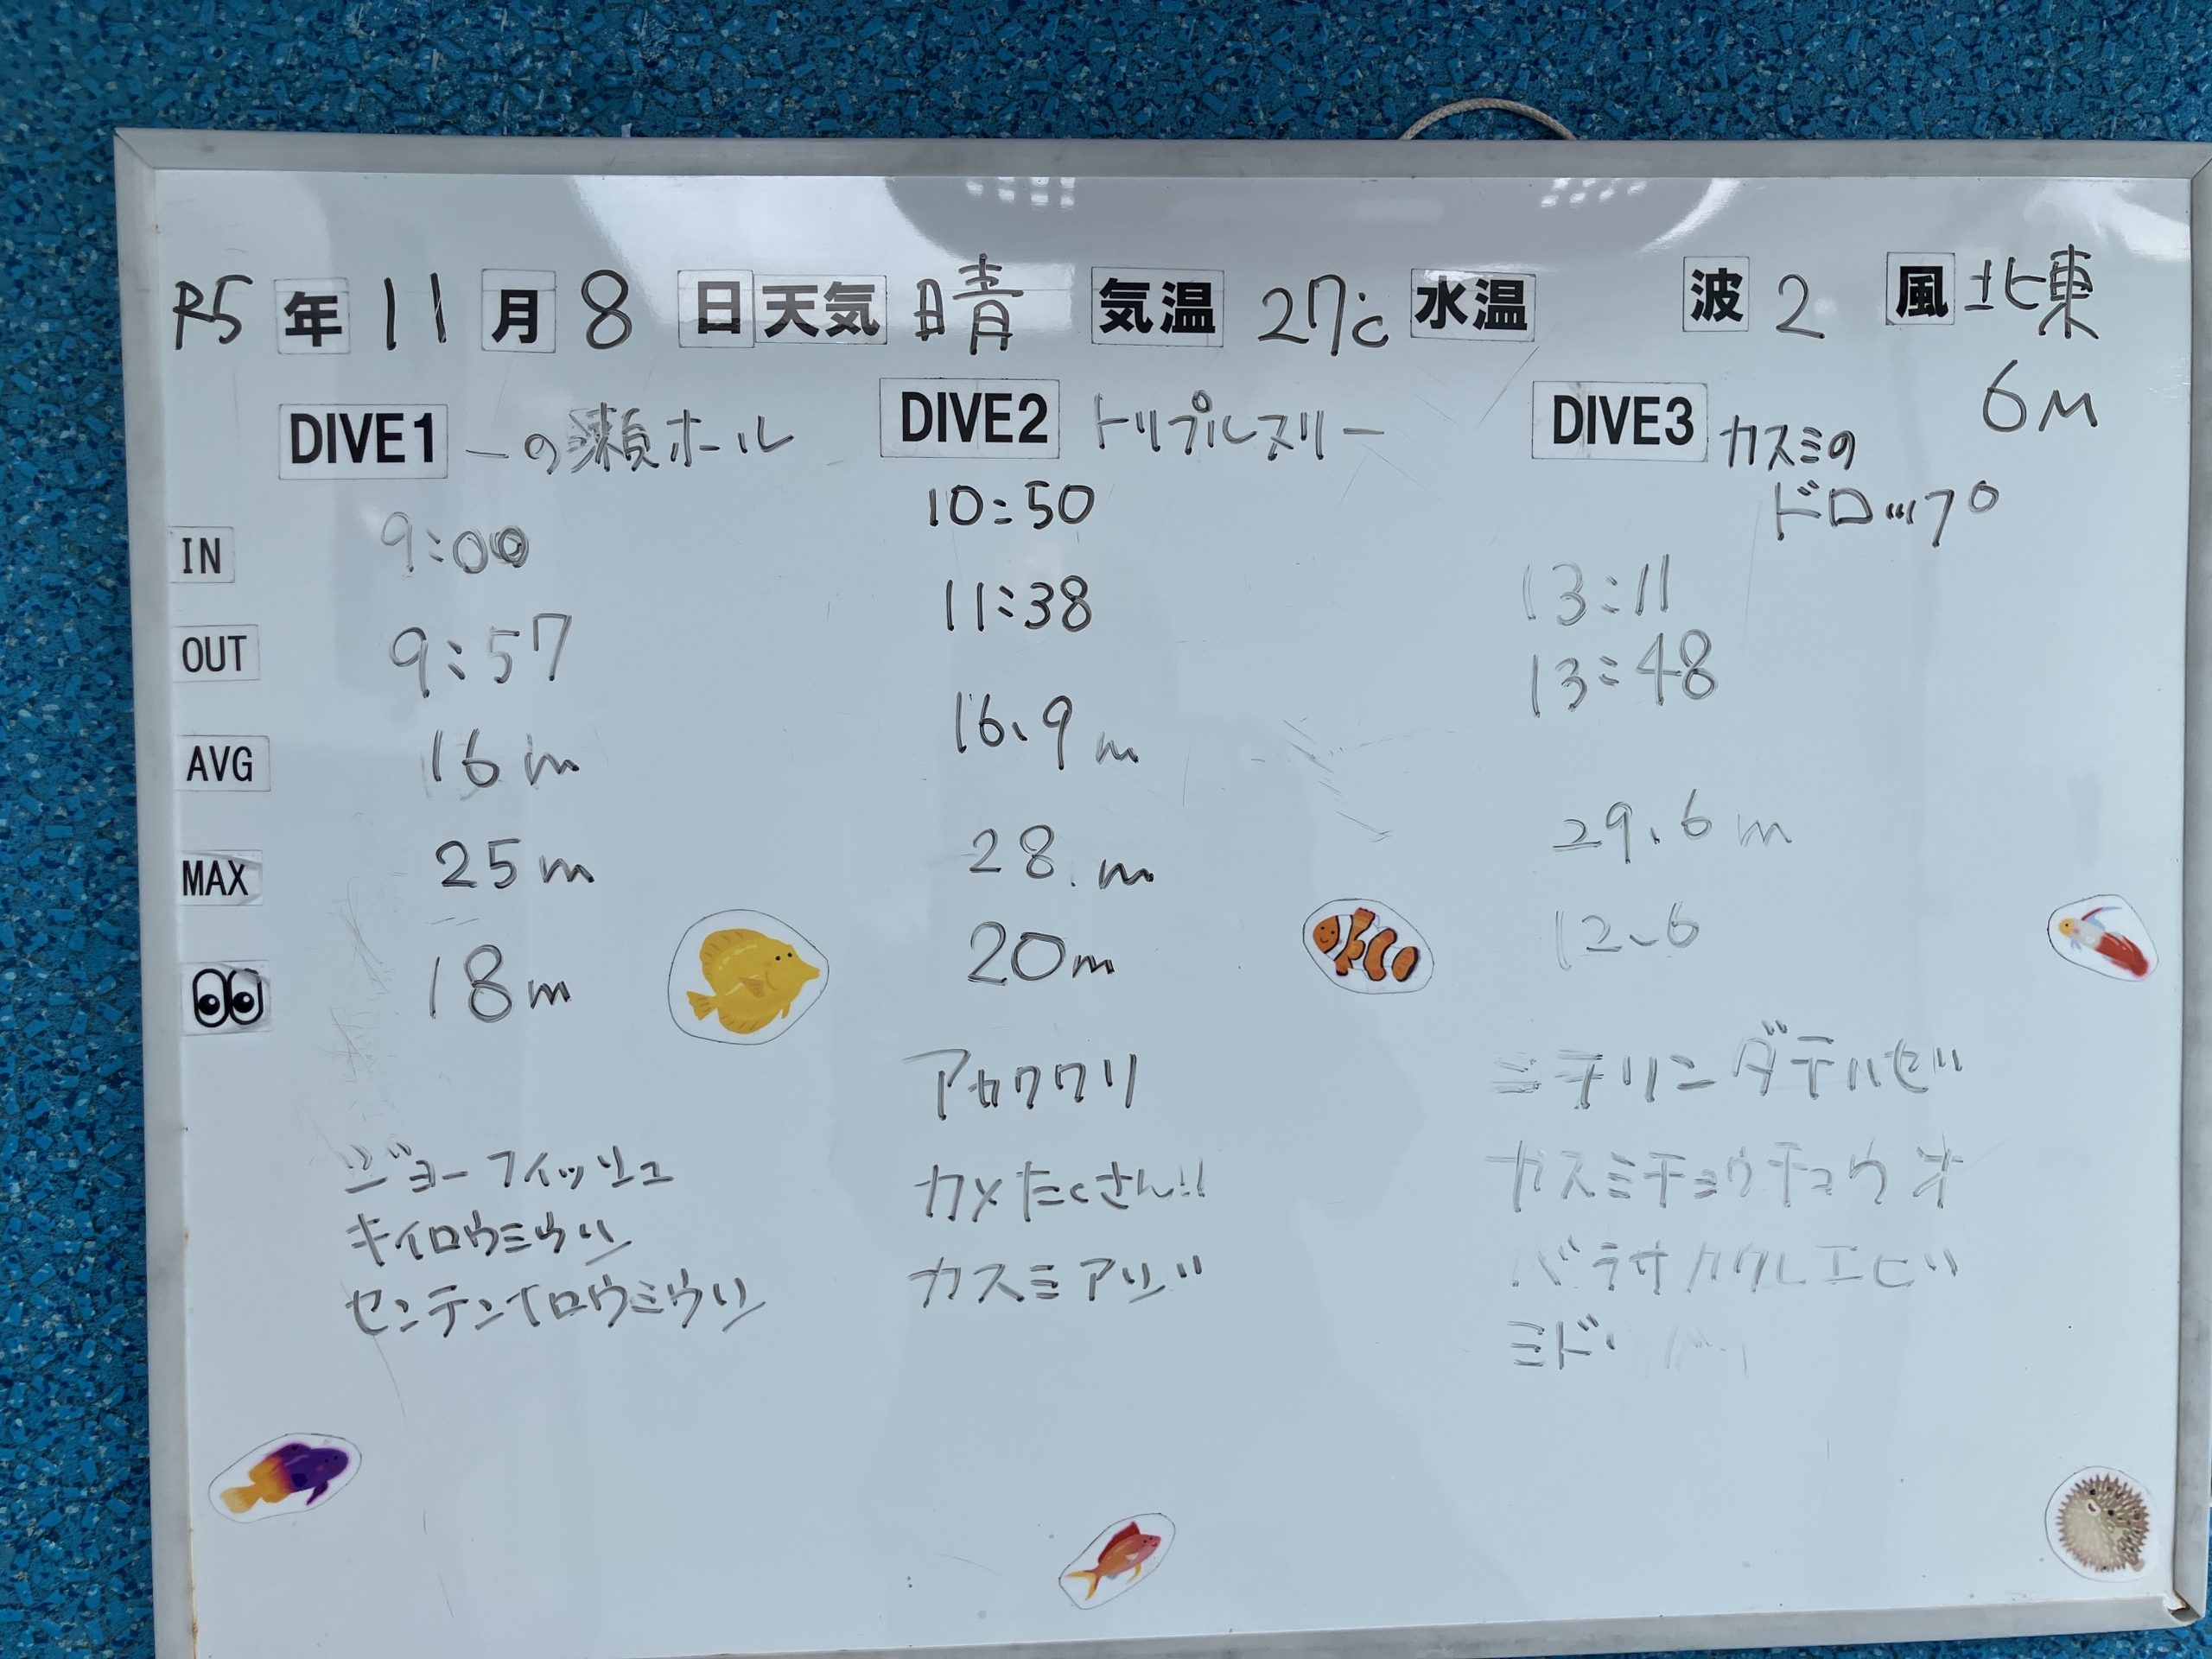 R5 年 11 月 8 日 天気 晴 気温 27℃ 水温 波 2 風 北東
6M
DIVE1 一の瀬ホール
DIVE2 トリプルスリー
DIVE3 カスミの
ドロップ
IN 9:00 10:50 13:11
OUT 9:57 11:38 13:48
AVG 16m 16.9m
MAX 25m 28m 29.6m
18m 20m 12.6
ジョーフィッシュ
キイロウミウシ
センテンイロウミウシ
アカククリ
カメたくさん!!
カスミアジ
ニテリンダテハゼ
カスミチョウチョウオ
バラサカクレエビ
ミド